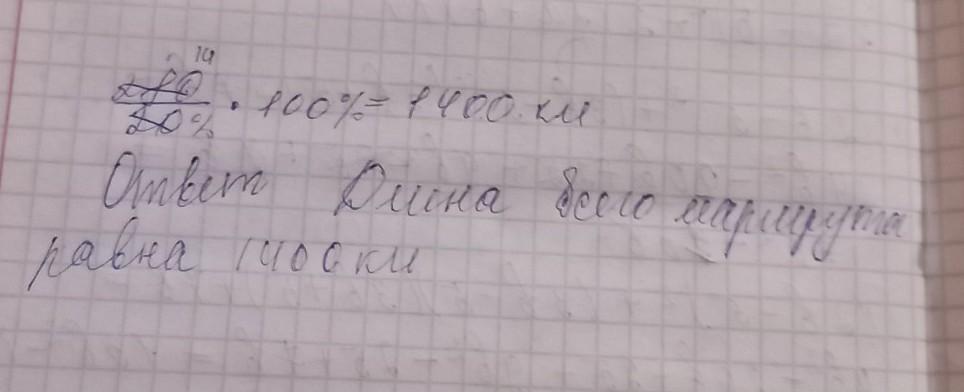 14
280/20% · 100% = 1400 км
Ответ Длина всего маршрута
равна 1400 км